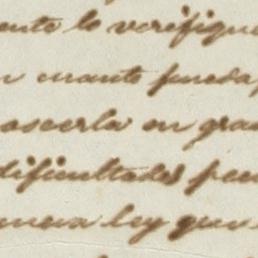 ente lo verifique
n cuanto pueda,
en gra
dificultades
nueva ley que